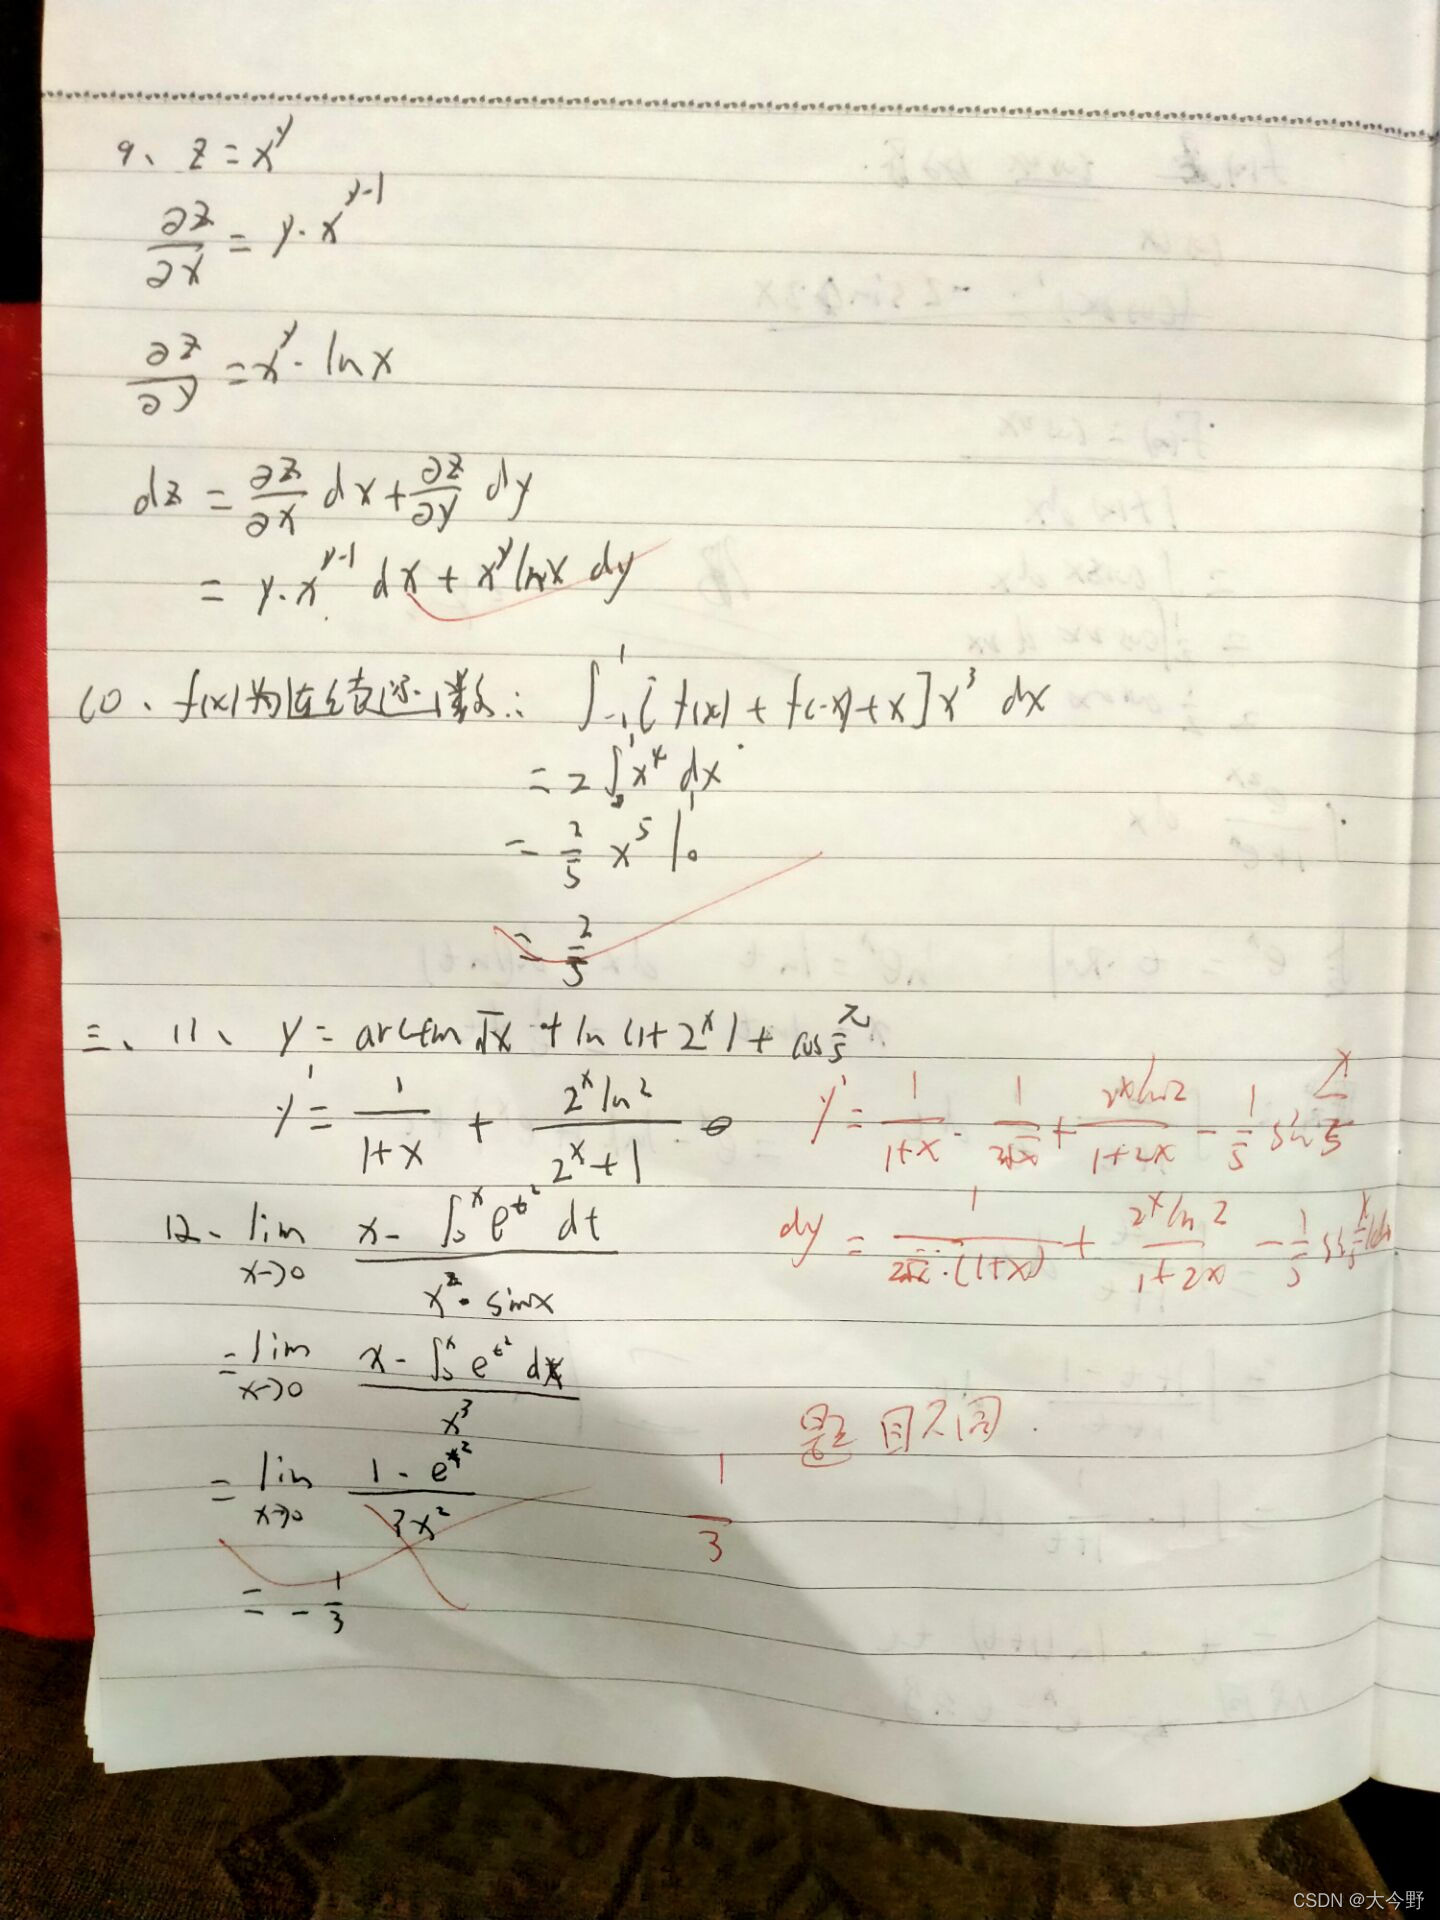 9、 z = x^y
∂z/∂x = y·x^{y-1}
∂z/∂y = x^y·lnx
dz = ∂z/∂x dx + ∂z/∂y dy
= y·x^{y-1} dx + x^y lnx dy
10、f(x)为连续函数: ∫_{-1}^{1} [f(x) + f(-x) + x] x^3 dx
= 2∫_0^1 x^4 dx
= 2/5 x^5 |_0^1
= 2/5
三、11、 y = arctan√x + ln(1+2^x) + cos π/5
y' = 1/(1+x) + 2^x ln2/(2^x+1)
y' = 1/(1+x) · 1/(2√x) + 2^x ln2/(1+2x) - 1/5 sin x/5
12、lim_{x→0} (x - ∫_0^x e^{t^2} dt)/(x^2·sinx)
dy = 1/(2√x·(1+x)) + 2^x ln2/(1+2x) - 1/5
= lim_{x→0} (x - ∫_0^x e^{t^2} dx)/x^3
题目不同.
= lim_{x→0} (1 - e^{x^2})/(3x^2)
1/3
= -1/3
CSDN @大今野